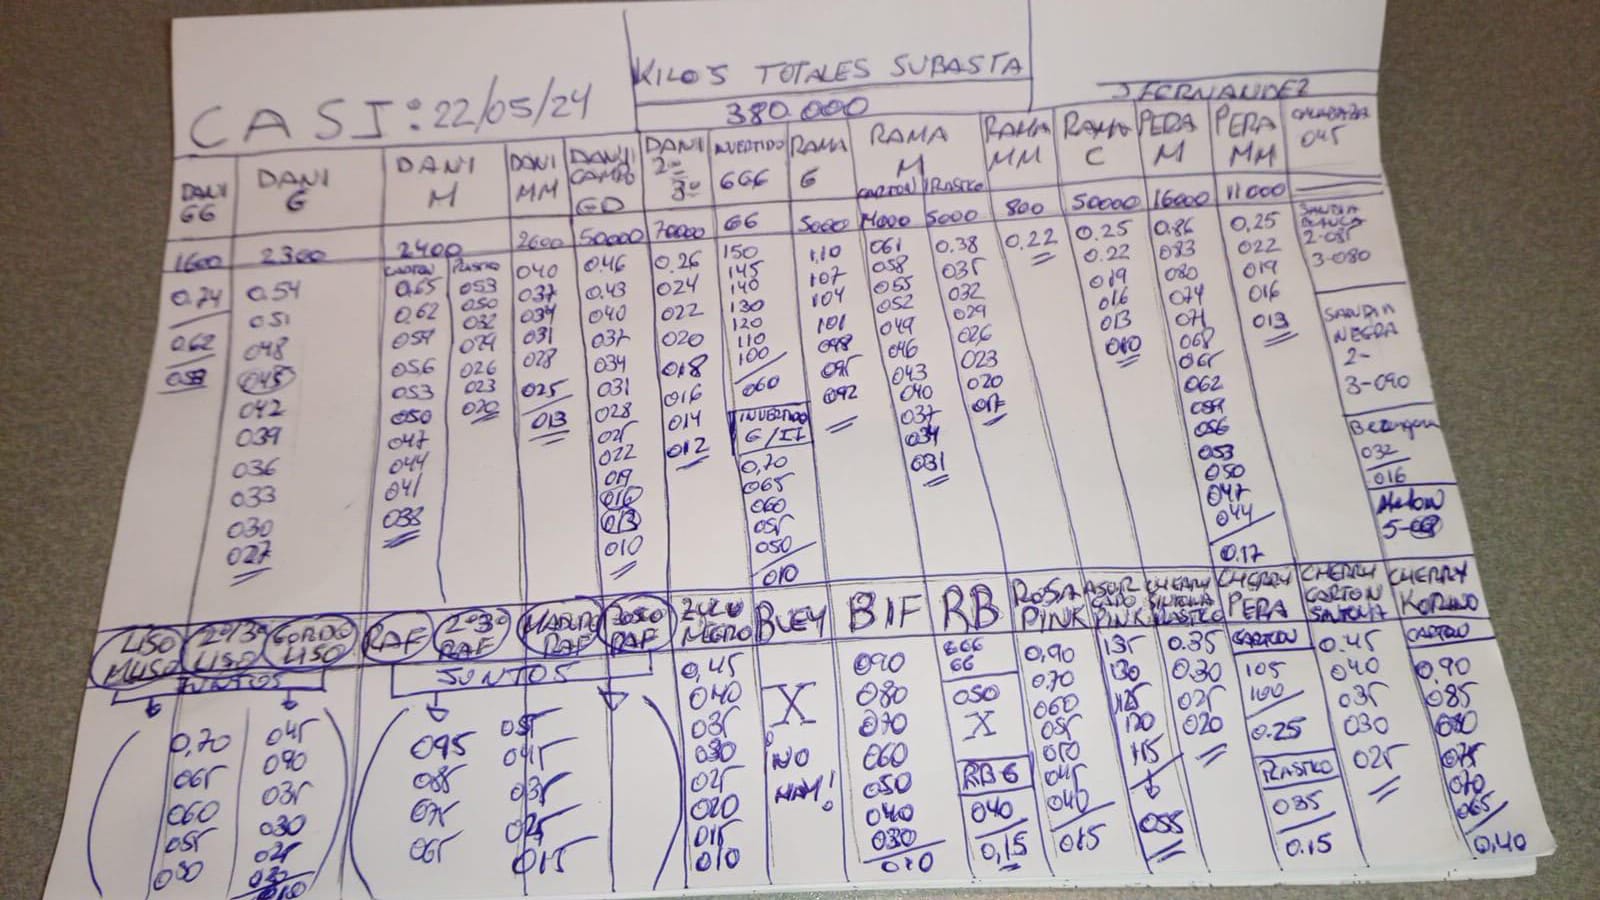 KILOS TOTALES SUBASTA
CASI: 22/05/24
380.000
J FERNANDEZ
DANI GG
1600
0,74
062
053
DANI G
2300
0.54
051
048
045
042
039
036
033
030
027
DANI M
2400
CARTON
0,65
0.62
059
056
053
050
047
044
041
038
PLASTICO
053
050
032
029
026
023
020
DANI MM
2600
040
037
034
031
028
025
013
DANI CAMPO GD
50000
0.46
0.43
040
037
034
031
028
025
022
019
016
013
010
DANI 2ª 3ª
70000
0.26
024
022
020
018
016
014
012
INVERTIDO GGG
GG
150
145
140
130
120
110
100
060
INVERTIDO G/II
0,70
065
060
055
050
010
RAMA G
5000
1,10
107
104
101
098
095
092
RAMA M
CARTON
14000
061
058
055
052
049
046
043
040
037
034
031
PLASTICO
5000
0.38
035
032
029
026
023
020
017
RAMA MM
800
0.22
RAMA C
50000
0.25
0.22
019
016
013
010
PERA M
16000
0.86
083
080
074
071
068
065
062
059
056
053
050
047
044
0.17
PERA MM
11000
0,25
022
019
016
013
CALABAZA
045
SANDIA BLANCA
2-085
3-080
SANDIA NEGRA
2-
3-090
Berenjena
032
016
Melon
LISO MUSO
2º/3º LISO
GORDO LISO
JUNTOS
0,70
065
060
055
050
045
040
035
030
025
020
010
RAF
2º3º RAF
MADURO RAF
ROSO RAF
JUNTOS
095
085
075
065
055
045
035
025
015
ZULU NEGRO
0,45
040
035
030
025
020
015
010
BUEY
X
NO
HAY!
BIF
090
080
070
060
050
040
030
010
RB
GGG
GG
050
X
RB G
040
0,15
ROSA PINK
0,90
070
060
055
050
045
040
015
ASURCADO PINK
135
130
125
120
115
055
CHERRY SINTONIA PLASTICO
0.35
0.30
025
020
CHERRY PERA
CARTON
105
100
0.25
PLASTICO
035
0.15
CHERRY CARTON SINTONIA
0.45
040
035
030
025
CHERRY KORINO
CARTON
0,90
085
080
075
070
065
0,40